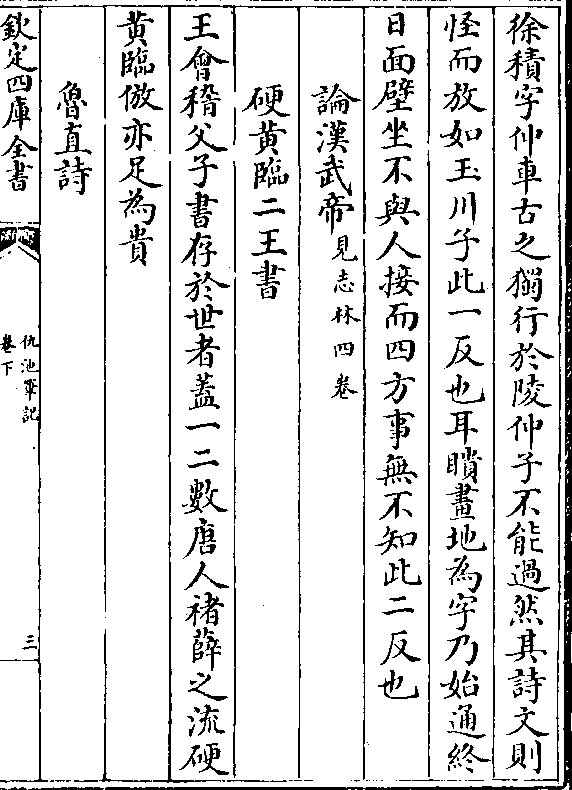 徐積字仲車古之獨行於陵仲子不能過然其詩文則
怪而放如玉川子此一反也耳聵畫地為字乃始通終
日面壁坐不與人接而四方事無不知此二反也
論漢武帝見志林四卷
硬黄臨二王書
王會稽父子書存於世者蓋一二數唐人褚薛之流硬
黄臨倣亦足為貴
魯直詩
欽定四庫全書
仇池筆記
卷下
三